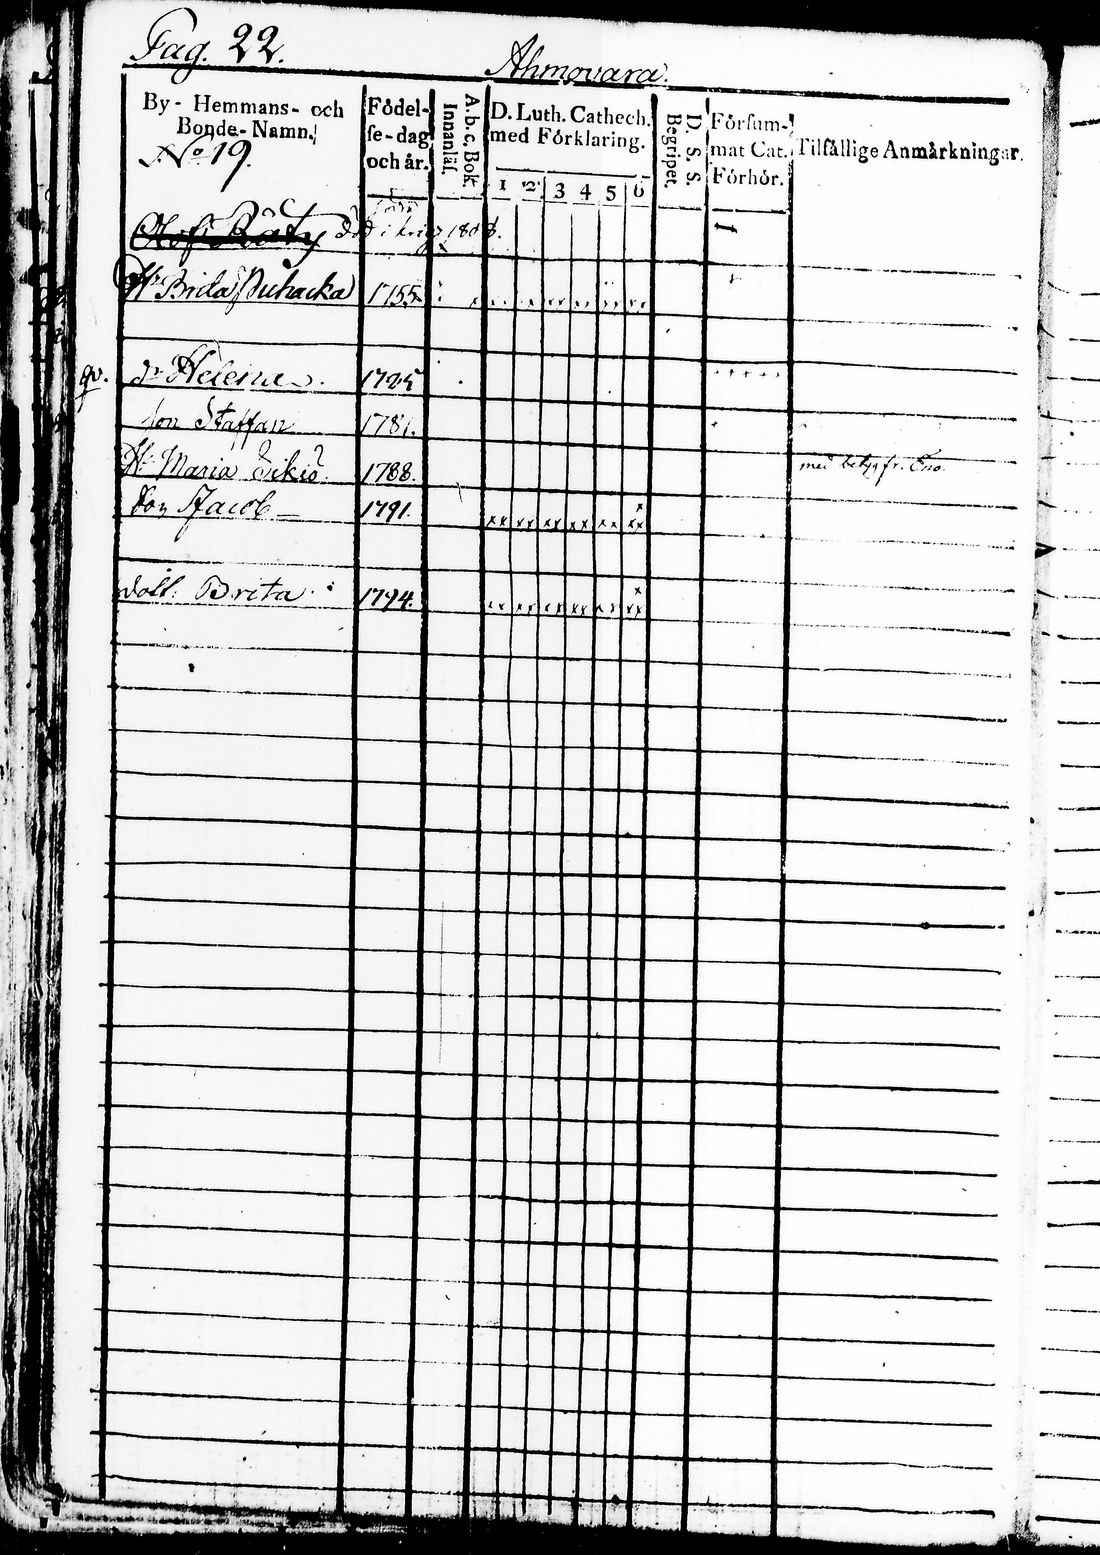 Pag. 22.
Ahmovara.
By- Hemmans- och
Bonde-Namn.
No 19.
Födel-
se-dag
och år.
A.b.c, Bok.
Innanläs.
D. Luth. Cathech.
med Förklaring.
1 2 3 4 5 6
D. S. S.
Begripet.
Försum-
mat Cat.
Förhör.
Tilfällige Anmärkningar.
Olof Räty död i krig 1808.
H. Brita Puhacka 1755
qv.
Helena 1725
son Staffan 1781.
H. Maria 1788. med betyg fr. Eno.
Son Jacob 1791.
dott. Brita 1794.